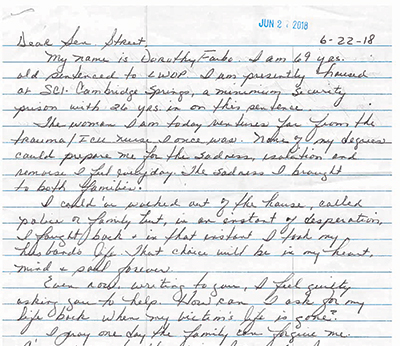 JUN 2 2018
Dear Sen Street
6-22-18
My name is Dorothy I am 69 yrs.
old sentenced to LWOP. I am presently housed
at SCI-Cambridge Springs, a minimum security
prison with 26 yrs. in on this sentence.
The woman I am today ventures far from the
trauma/ICU nurse I once was. None of my degrees
could prepare me for the sadness, isolation and
remorse I feel everyday. The sadness I brought
to both families.
I could 'av walked out of the house, called
police or family but, in an instant of desperation,
I fought back & in that instant I took my
husbands life. That choice will be in my heart,
mind & soul forever.
Even now, writing to you, I feel guilty
asking you to help. How can I ask for my
life back when my victim's life is gone?
I pray one day the family can forgive me.